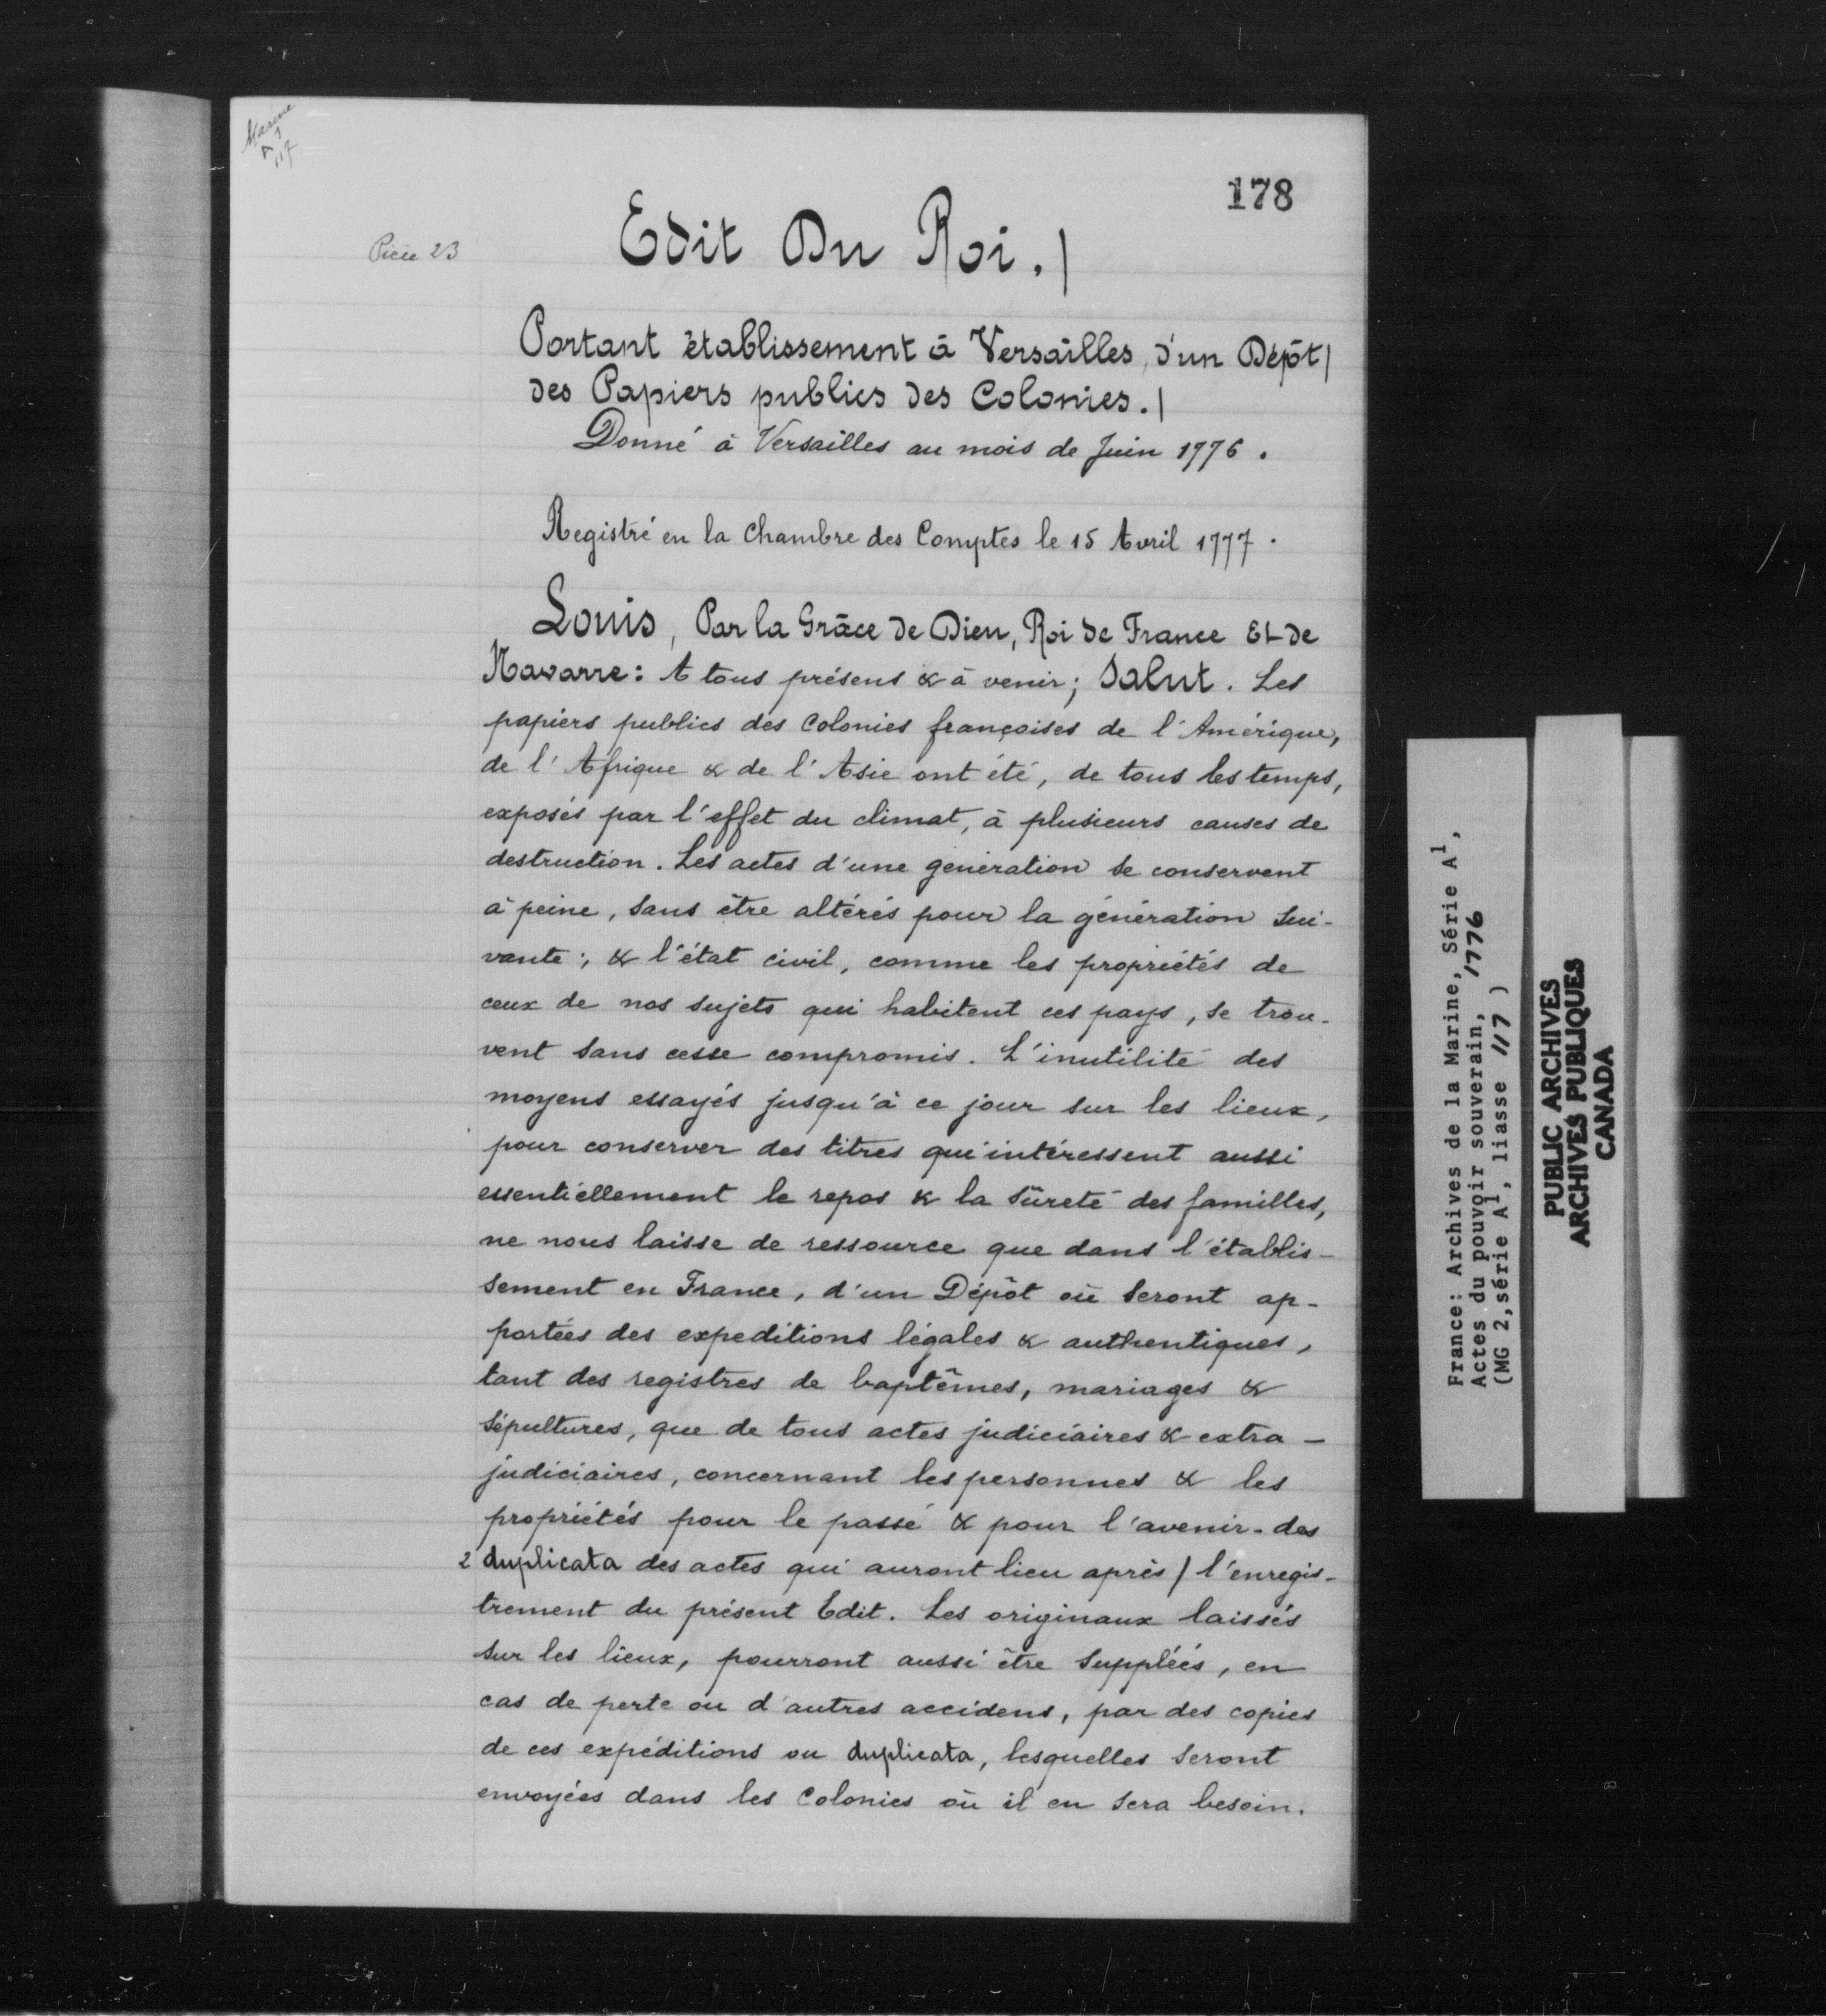 Marine
A1
117
178
Pièce 23
Edit Du Roi. /
Portant établissement à Versailles, d'un Dépôt /
des Papiers publics des Colonies. /
Donné à Versailles au mois de Juin 1776.
Registré en la Chambre des Comptes le 15 Avril 1777.
Louis, Par la Grâce de Dieu, Roi de France Et de
Navarre: A tous présens & à venir; Salut. Les
papiers publics des Colonies françoises de l'Amérique,
de l'Afrique & de l'Asie ont été, de tous les temps,
exposés par l'effet du climat, à plusieurs causes de
destruction. Les actes d'une génération se conservent
à peine, sans être altérés pour la génération sui-
vante; & l'état civil, comme les propriétés de
ceux de nos sujets qui habitent ces pays, se trou-
vent sans cesse compromis. L'inutilité des
moyens essayés jusqu'à ce jour sur les lieux,
pour conserver des titres qui intéressent aussi
essentiellement le repos & la sûreté des familles,
ne nous laisse de ressource que dans l'établis-
sement en France, d'un Dépôt où seront ap-
portées des expeditions légales & authentiques,
tant des registres de baptêmes, mariages &
sépultures, que de tous actes judiciaires & extra-
judiciaires, concernant les personnes & les
propriétés pour le passé & pour l'avenir - des
2 duplicata des actes qui auront lieu après / l'enregis-
trement du présent Edit. Les originaux laissés
sur les lieux, pourront aussi être suppléés, en
cas de perte ou d'autres accidens, par des copies
de ces expéditions ou duplicata, lesquelles seront
envoyées dans les Colonies où il en sera besoin.
France: Archives de la Marine, Série A1,
Actes du pouvoir souverain, 1776
(MG 2, série A1, liasse 117 )
PUBLIC ARCHIVES
ARCHIVES PUBLIQUES
CANADA